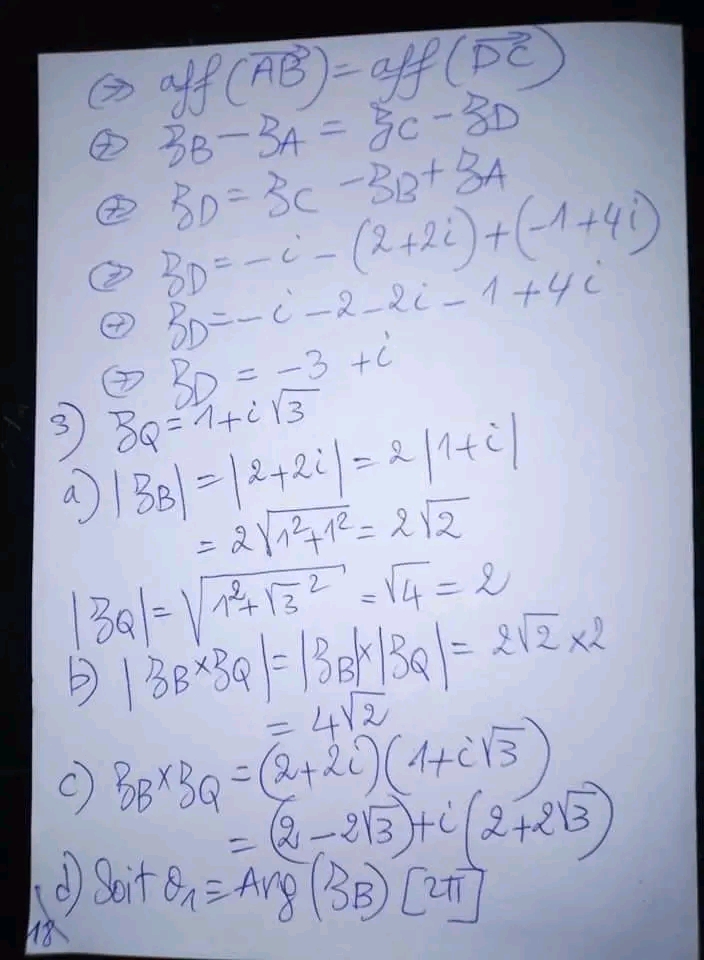 ⇔ aff(AB→) = aff(DC→)
⇔ zB − zA = zC − zD
⇔ zD = zC − zB + zA
⇔ zD = −i − (2+2i) + (−1+4i)
⇔ zD = −i − 2 − 2i − 1 + 4i
⇔ zD = −3 + i
3) zQ = 1+i√3
a) |zB| = |2+2i| = 2|1+i|
= 2√(1²+1²) = 2√2
|zQ| = √(1²+√3²) = √4 = 2
b) |zB×zQ| = |zB|×|zQ| = 2√2 ×2
= 4√2
c) zB×zQ = (2+2i)(1+i√3)
= (2−2√3)+i(2+2√3)
d) Soit θ1 ≡ Arg(zB) [2π]
18